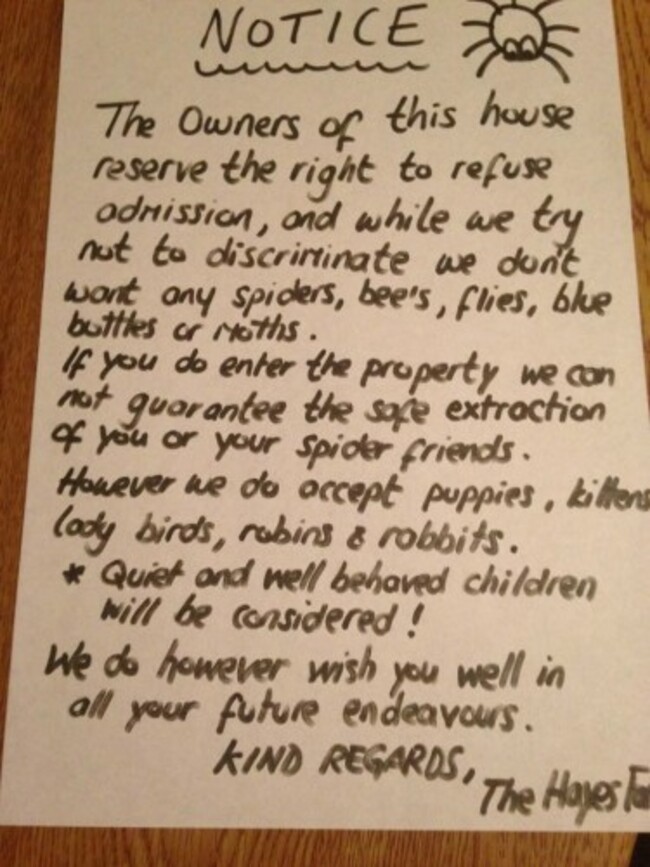 NOTICE
The Owners of this house
reserve the right to refuse
admission, and while we try
not to discriminate we don't
want any spiders, bee's, flies, blue
bottles or moths.
If you do enter the property we can
not guarantee the safe extraction
of you or your spider friends.
However we do accept puppies, kittens
lady birds, robins & rabbits.
* Quiet and well behaved children
will be considered!
We do however wish you well in
all your future endeavours.
KIND REGARDS,
The Hayes